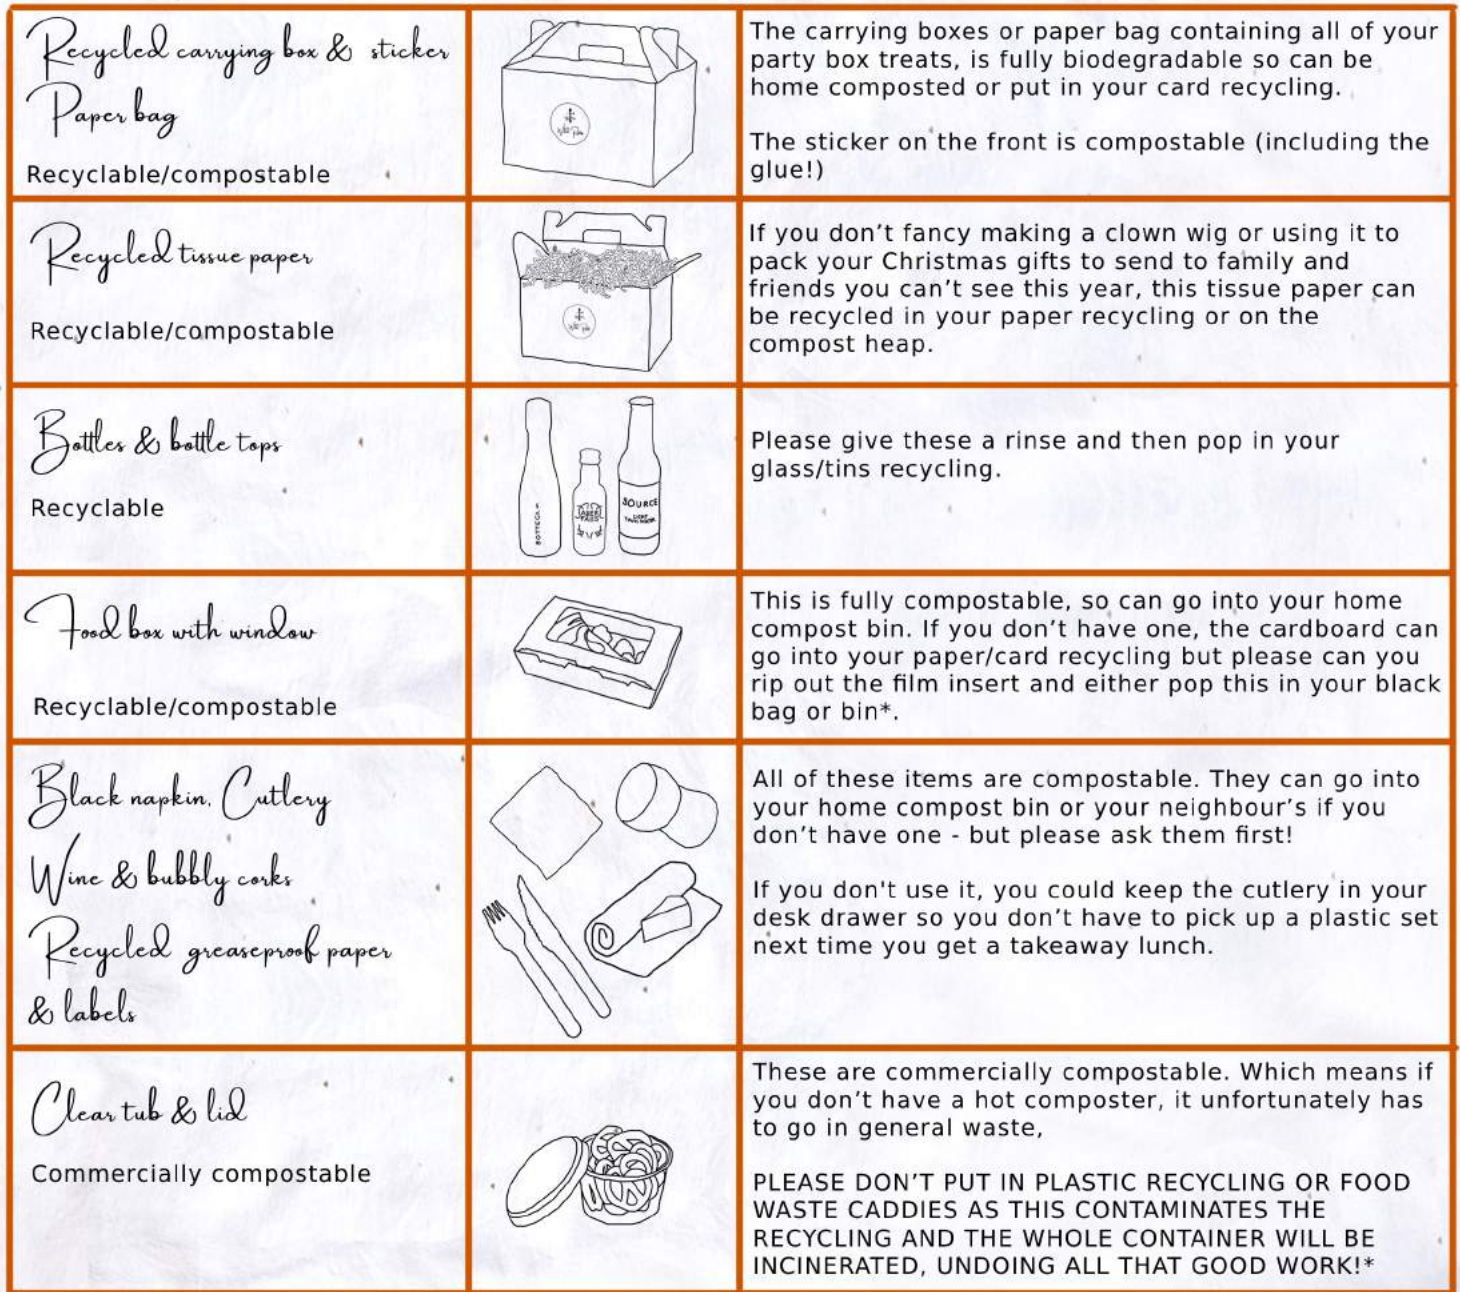 Recycled carrying box & sticker
Paper bag
Recyclable/compostable
The carrying boxes or paper bag containing all of your
party box treats, is fully biodegradable so can be
home composted or put in your card recycling.
The sticker on the front is compostable (including the
glue!)
Recycled tissue paper
Recyclable/compostable
If you don't fancy making a clown wig or using it to
pack your Christmas gifts to send to family and
friends you can't see this year, this tissue paper can
be recycled in your paper recycling or on the
compost heap.
Bottles & bottle tops
Recyclable
BOTTEGA
SOURCE
Please give these a rinse and then pop in your
glass/tins recycling.
Food box with window
Recyclable/compostable
This is fully compostable, so can go into your home
compost bin. If you don't have one, the cardboard can
go into your paper/card recycling but please can you
rip out the film insert and either pop this in your black
bag or bin*.
Black napkin, Cutlery
Wine & bubbly corks
Recycled greaseproof paper
& labels
All of these items are compostable. They can go into
your home compost bin or your neighbour's if you
don't have one - but please ask them first!
If you don't use it, you could keep the cutlery in your
desk drawer so you don't have to pick up a plastic set
next time you get a takeaway lunch.
Clear tub & lid
Commercially compostable
These are commercially compostable. Which means if
you don't have a hot composter, it unfortunately has
to go in general waste,
PLEASE DON'T PUT IN PLASTIC RECYCLING OR FOOD
WASTE CADDIES AS THIS CONTAMINATES THE
RECYCLING AND THE WHOLE CONTAINER WILL BE
INCINERATED, UNDOING ALL THAT GOOD WORK!*